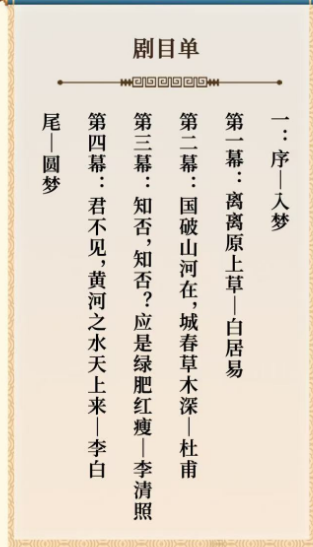 剧目单
一：序—入梦
第一幕：离离原上草—白居易
第二幕：国破山河在，城春草木深—杜甫
第三幕：知否，知否？应是绿肥红瘦—李清照
第四幕：君不见，黄河之水天上来—李白
尾—圆梦